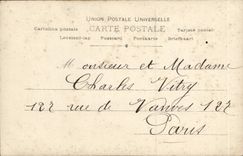 UNION POSTALE UNIVERSELLE
CARTE POSTALE
Cartolina postale Tarjeta postal
Levelező-lap Postcard Postkarte Briefkaart
Monsieur et Madame
Charles Vitry
127 rue de Vanves 127
Paris